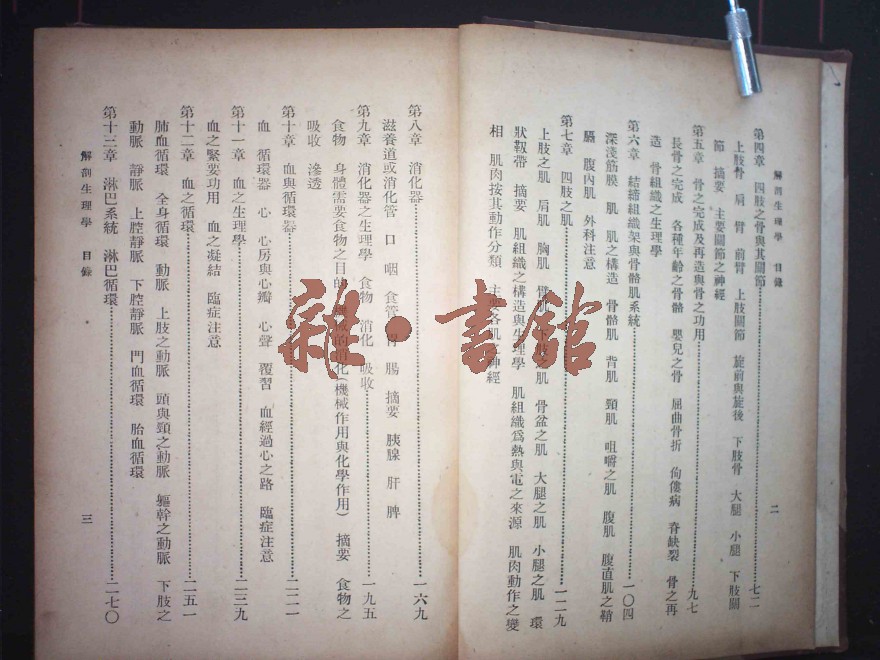 解剖生理學 目錄
二
第四章 四肢之骨與其關節……七二
上肢骨 肩 臂 前臂 上肢關節 旋前與旋後 下肢骨 大腿 小腿 下肢關
節 摘要 主要關節之神經
第五章 骨之完成及再造與骨之功用……九七
長骨之完成 各種年齡之骨骼 嬰兒之骨 屈曲骨折 佝僂病 脊缺裂 骨之再
造 骨組織之生理學
第六章 結締組織架與骨骼肌系統……一〇四
深淺筋膜 肌 肌之構造 骨骼肌 背肌 頸肌 咀嚼之肌 腹肌 腹直肌之鞘
膈 腹內肌 外科注意
第七章 四肢之肌……一二九
上肢之肌 肩肌 胸肌 臂肌 下肢之肌 骨盆之肌 大腿之肌 小腿之肌 環
狀靱帶 摘要 肌組織之構造與生理學 肌組織爲熱與電之來源 肌肉動作之變
相 肌肉按其動作分類 主要各肌之神經
第八章 消化器……一六九
滋養道或消化管 口 咽 食管 胃 腸 摘要 胰腺 肝 脾
第九章 消化器之生理學 食物 消化 吸收……一九五
食物 身體需要食物之目的 機械的消化(機械作用與化學作用) 摘要 食物之
吸收 滲透
第十章 血與循環器……二二一
血 循環器 心 心房與心瓣 心聲 覆習 血經過心之路 臨症注意
第十一章 血之生理學……二三九
血之緊要功用 血之凝結 臨症注意
第十二章 血之循環……二五一
肺血循環 全身循環 動脈 上肢之動脈 頭與頸之動脈 軀幹之動脈 下肢之
動脈 靜脈 上腔靜脈 下腔靜脈 門血循環 胎血循環
第十三章 淋巴系統 淋巴循環……二七〇
解剖生理學 目錄
三
雜·書館